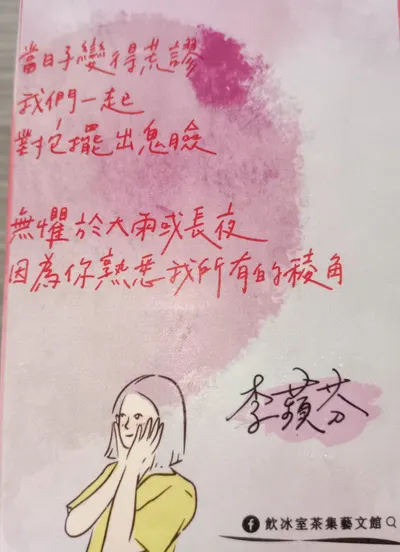 當日子變得荒謬
我們一起
對它擺出鬼臉
無懼於大雨或長夜
因為你熟悉我所有的稜角
李蘋芬
飲冰室茶集藝文館